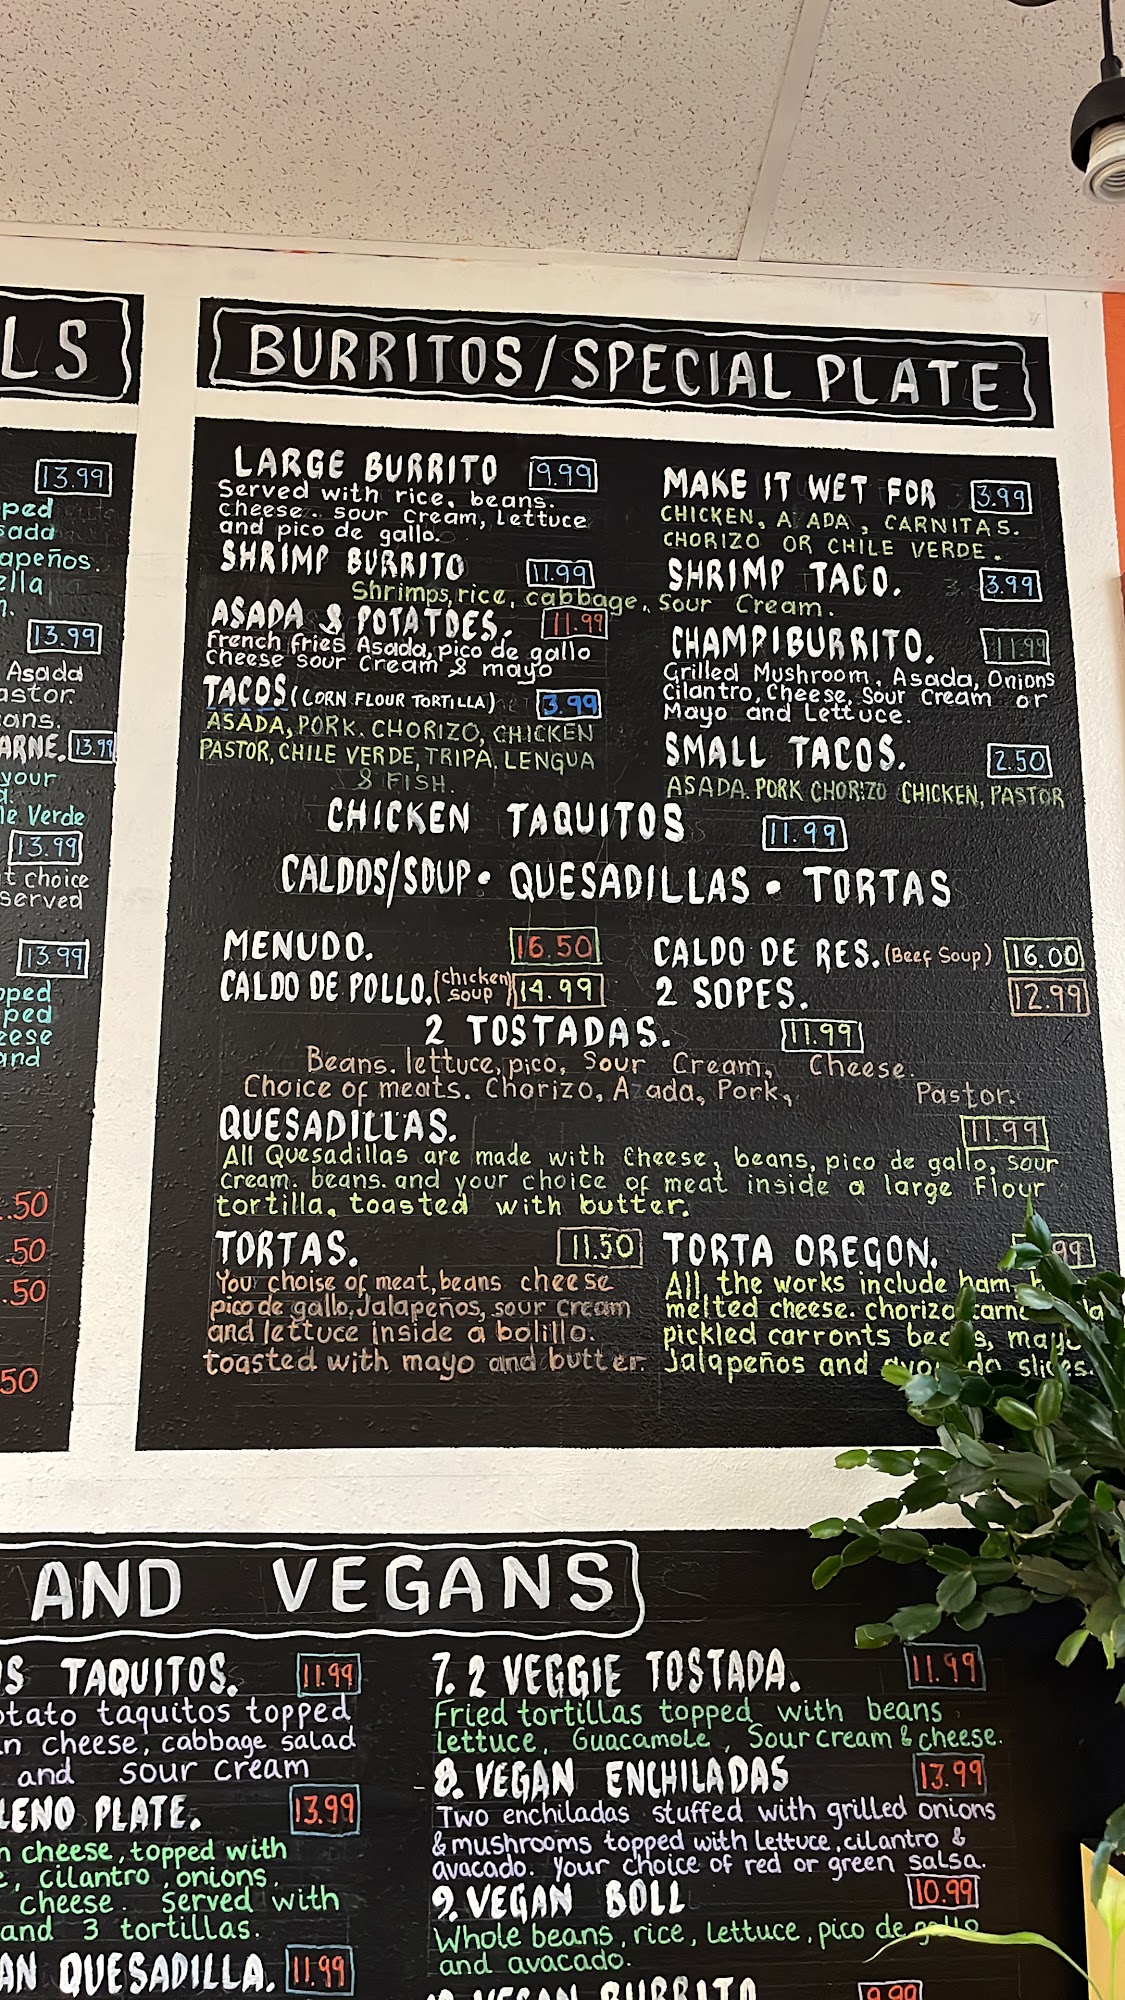 LS
13.99
ped
sada
apeños.
ella
13.99
Asada
astor.
ans.
ARNE. 13.99
your
le Verde
13.99
t choice
served
13.99
pped
ped
eese
and
.50
.50
.50
50
BURRITOS/SPECIAL PLATE
LARGE BURRITO 9.99
Served with rice, beans.
cheese. sour cream, lettuce
and pico de gallo.
SHRIMP BURRITO 11.99
Shrimps, rice, cabbage, sour Cream.
ASADA & POTATOES. 11.99
French fries Asada, pico de gallo
cheese sour Cream & mayo
TACOS (CORN FLOUR TORTILLA) 3.99
ASADA, PORK. CHORIZO, CHICKEN
PASTOR, CHILE VERDE, TRIPA, LENGUA
& FISH.
MAKE IT WET FOR 3.99
CHICKEN, A ADA, CARNITAS.
CHORIZO OR CHILE VERDE.
SHRIMP TACO. 3.99
CHAMPIBURRITO. 11.99
Grilled Mushroom, Asada, Onions
Cilantro, Cheese, Sour Cream or
Mayo and Lettuce.
SMALL TACOS. 2.50
ASADA. PORK CHORIZO CHICKEN, PASTOR
CHICKEN TAQUITOS 11.99
CALDOS/SOUP • QUESADILLAS • TORTAS
MENUDO. 16.50
CALDO DE RES. (Beef Soup) 16.00
CALDO DE POLLO. (chicken soup) 14.99
2 SOPES. 12.99
2 TOSTADAS. 11.99
Beans. lettuce, pico, Sour Cream, Cheese.
Choice of meats. Chorizo, A ada, Pork, Pastor.
QUESADILLAS. 11.99
All Quesadillas are made with Cheese, beans, pico de gallo, sour
cream. beans. and your choice of meat inside a large Flour
tortilla, toasted with butter.
TORTAS. 11.50
Your choise of meat, beans cheese
pico de gallo, Jalapeños, sour cream
and lettuce inside a bolillo.
toasted with mayo and butter.
TORTA OREGON. 99
All the works include ham,
melted cheese. chorizo
pickled carronts mayo
Jalapeños and slices.
AND VEGANS
S TAQUITOS. 11.99
otato taquitos topped
n cheese, cabbage salad
and sour cream
LENO PLATE. 13.99
n cheese, topped with
e, cilantro, onions,
cheese. Served with
and 3 tortillas.
AN QUESADILLA. 11.99
7. 2 VEGGIE TOSTADA. 11.99
Fried tortillas topped with beans
lettuce, Guacamole, Sour cream & cheese.
8. VEGAN ENCHILADAS 13.99
Two enchiladas stuffed with grilled onions
& mushrooms topped with lettuce, cilantro &
avacado. Your choice of red or green salsa.
9. VEGAN BOLL 10.99
Whole beans, rice, Lettuce, pico de gallo
and avacado.
VEGAN BURRITO 9.99